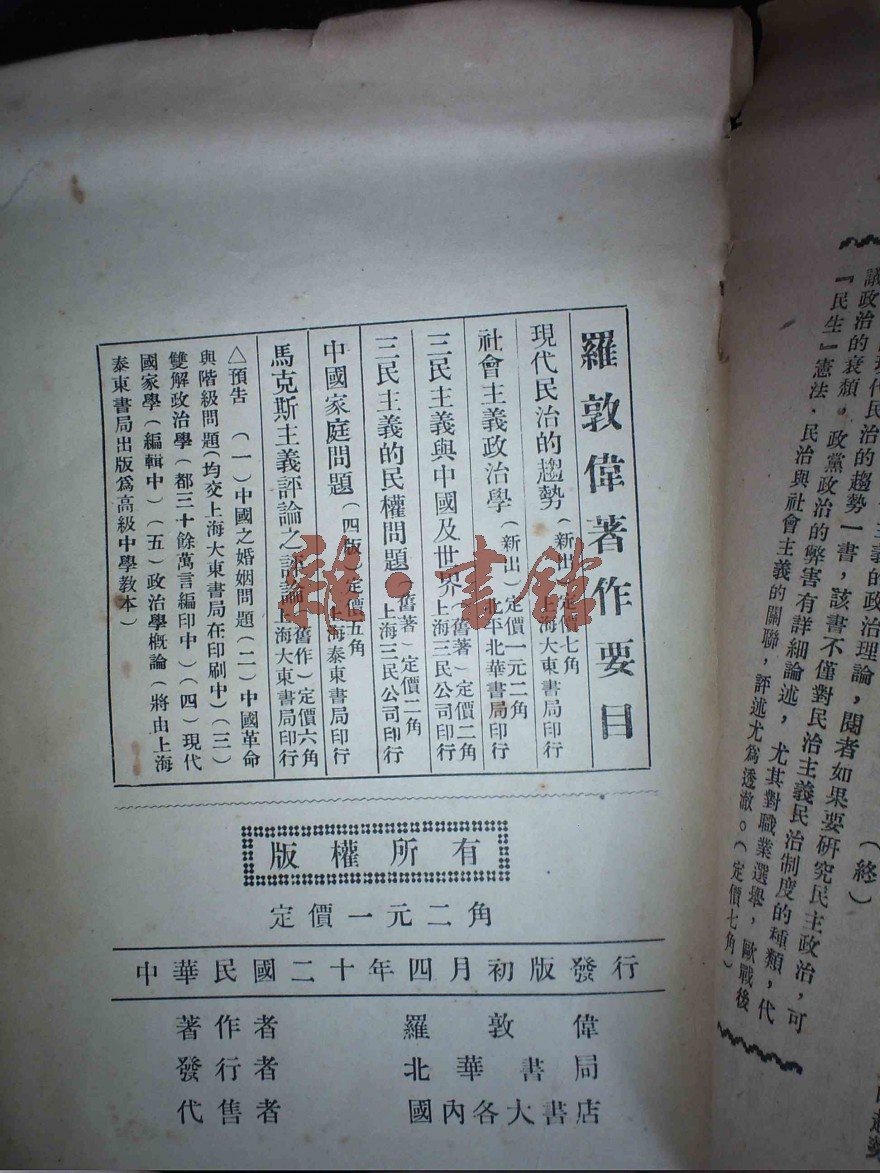 議政治的衰頹，政黨政治的弊害有詳細論述，尤其對職業選舉，歐戰後
『民生』憲法．民治與社會主義的關聯，評述尤爲透澈。（定價七角）
（終）
羅敦偉著作要目
現代民治的趨勢（新出）定價七角 上海大東書局印行
社會主義政治學（新出）定價一元二角 北平北華書局印行
三民主義與中國及世界（舊著）定價二角 上海三民公司印行
三民主義的民權問題（舊著）定價二角 上海三民公司印行
中國家庭問題（四版）定價五角 上海泰東書局印行
馬克斯主義評論之評論（舊作）定價六角 上海大東書局印行
△預告 （一）中國之婚姻問題（二）中國革命
與階級問題（均交上海大東書局在印刷中）（三）
雙解政治學（都三十餘萬言編印中）（四）現代
國家學（編輯中）（五）政治學概論（將由上海
泰東書局出版爲高級中學教本）
版權所有
定價一元二角
中華民國二十年四月初版發行
著作者 羅敦偉
發行者 北華書局
代售者 國內各大書店
書館